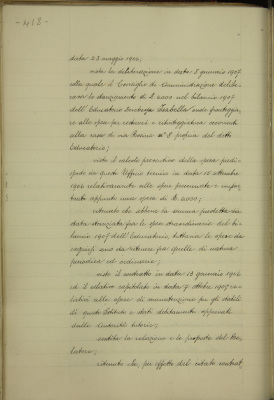 - 418 -
data 23 maggio 1906;
vista la deliberazione in data 8 gennaio 1907
colla quale il Consiglio di Amministrazione delibe-
rava lo stanziamento di L. 4000 nel bilancio 1907
dell'Educatorio Duchessa Isabella onde fronteggia-
re alle spese per restauri e rintonacatura occorrenti
alla casa di via n° 8 propria del detto
Educatorio;
visto il calcolo preventivo della spesa predi-
sposto da questo Ufficio tecnico in data 15 ottobre
1906 relativamente alle opere preventivate e impor-
tante appunto una spesa di L. 4000;
ritenuto che abbene la somma predetta sia
stata stanziata fra le spese straordinarie del bi-
lancio 1907 dell'Educatorio, tuttavia le opere da
eseguirsi sono da ritenere fra quelle di natura
periodica ed ordinaria;
visto il contratto in data 13 gennaio 1906
ed il relativo capitolato in data 7 ottobre 1905 re-
lativi alle opere di manutenzione per gli stabili
di questo Istituto e stati debitamente approvati
dalle Autorità tutorie;
sentita la relazione e la proposta del Re-
latore;
ritenuto che, per effetto del citato contrat-